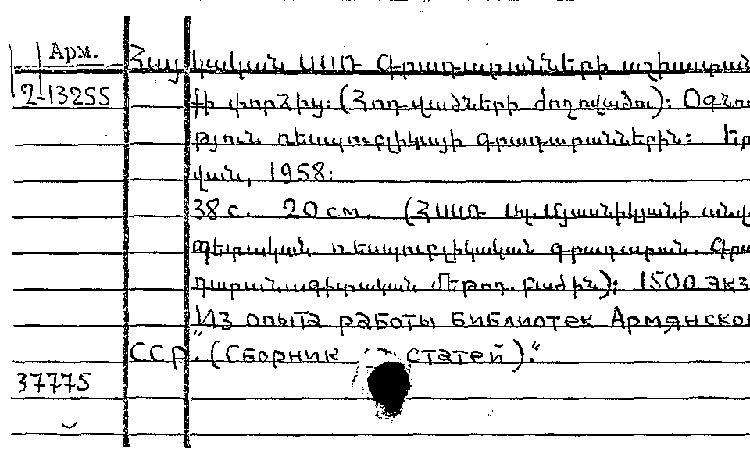 Арм.
2-13255
Հայկական ՍՍՌ Գրադարանների աշխատան
քի փորձից: (Հոդվածների ժողովածու): Օգնու
թյուն ռեսպուբլիկայի գրադարաններին: Եր
վան, 1958:
38 с. 20 см. (ՀՍՍՌ Ալ. Մյասնիկյանի անվ
Պետական ռեսպուբլիկական գրադարան. Գրա
դարանագիտական մեթոդ. բաժին): 1500 экз
"Из опыта работы библиотек Армянской
ССР. (Сборник статей)."
37775